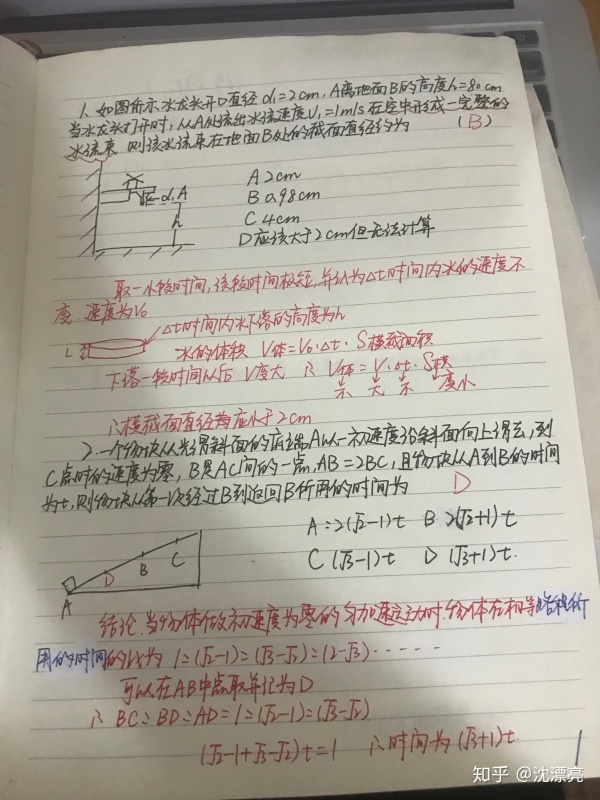 1、如图所示水龙头开口直径d₁=2cm，A离地面B的高度h=80cm
当水龙头打开时，从A处流出水流速度V₁=1m/s在空中形成一完整的
水流束 则该水流束在地面B处的截面直径约为 (B)
A 2cm
B 0.98cm
C 4cm
D 应该大于2cm但无法计算
d₁ A
h
取一小段时间，该段时间极短，并认为Δt时间内水的速度不
变 速度为V₀
Δt时间内水下落的高度为h
L
水的体积 V体=V₀·Δt·S横截面积
下落一段时间以后 V变大 ∴V体=V·Δt·S横
不 大 不 变小
∴横截面直径应小于2cm
2、一个物块从光滑斜面的底端A以一初速度沿斜面向上滑去，到
C点时的速度为零，B是AC间的一点，AB=2BC，且物块从A到B的时间
为t，则物块从第一次经过B到返回B所用的时间为 D
A=2(√2-1)t B 2(√2+1)t
C (√3-1)t D (√3+1)t.
A D B C
结论，当物体做初速度为零的匀加速运动时.物体在相等路程所
用的时间的比为 1:(√2-1):(√3-√2):(2-√3)·····
可以在AB中点取并记为D
∴BC:BD:AD=1:(√2-1):(√3-√2)
(√2-1+√3-√2)t=1 ∴时间为(√3+1)t.
1
知乎 @沈漂亮